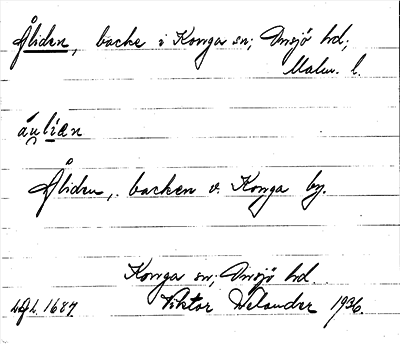 Åliden, backe i Konga sn; Onsjö hd;
Malm. l.
áu̯liæn
Åliden, backen v. Konga by.
Konga sn; Onsjö hd.
Viktor Welander 1936.